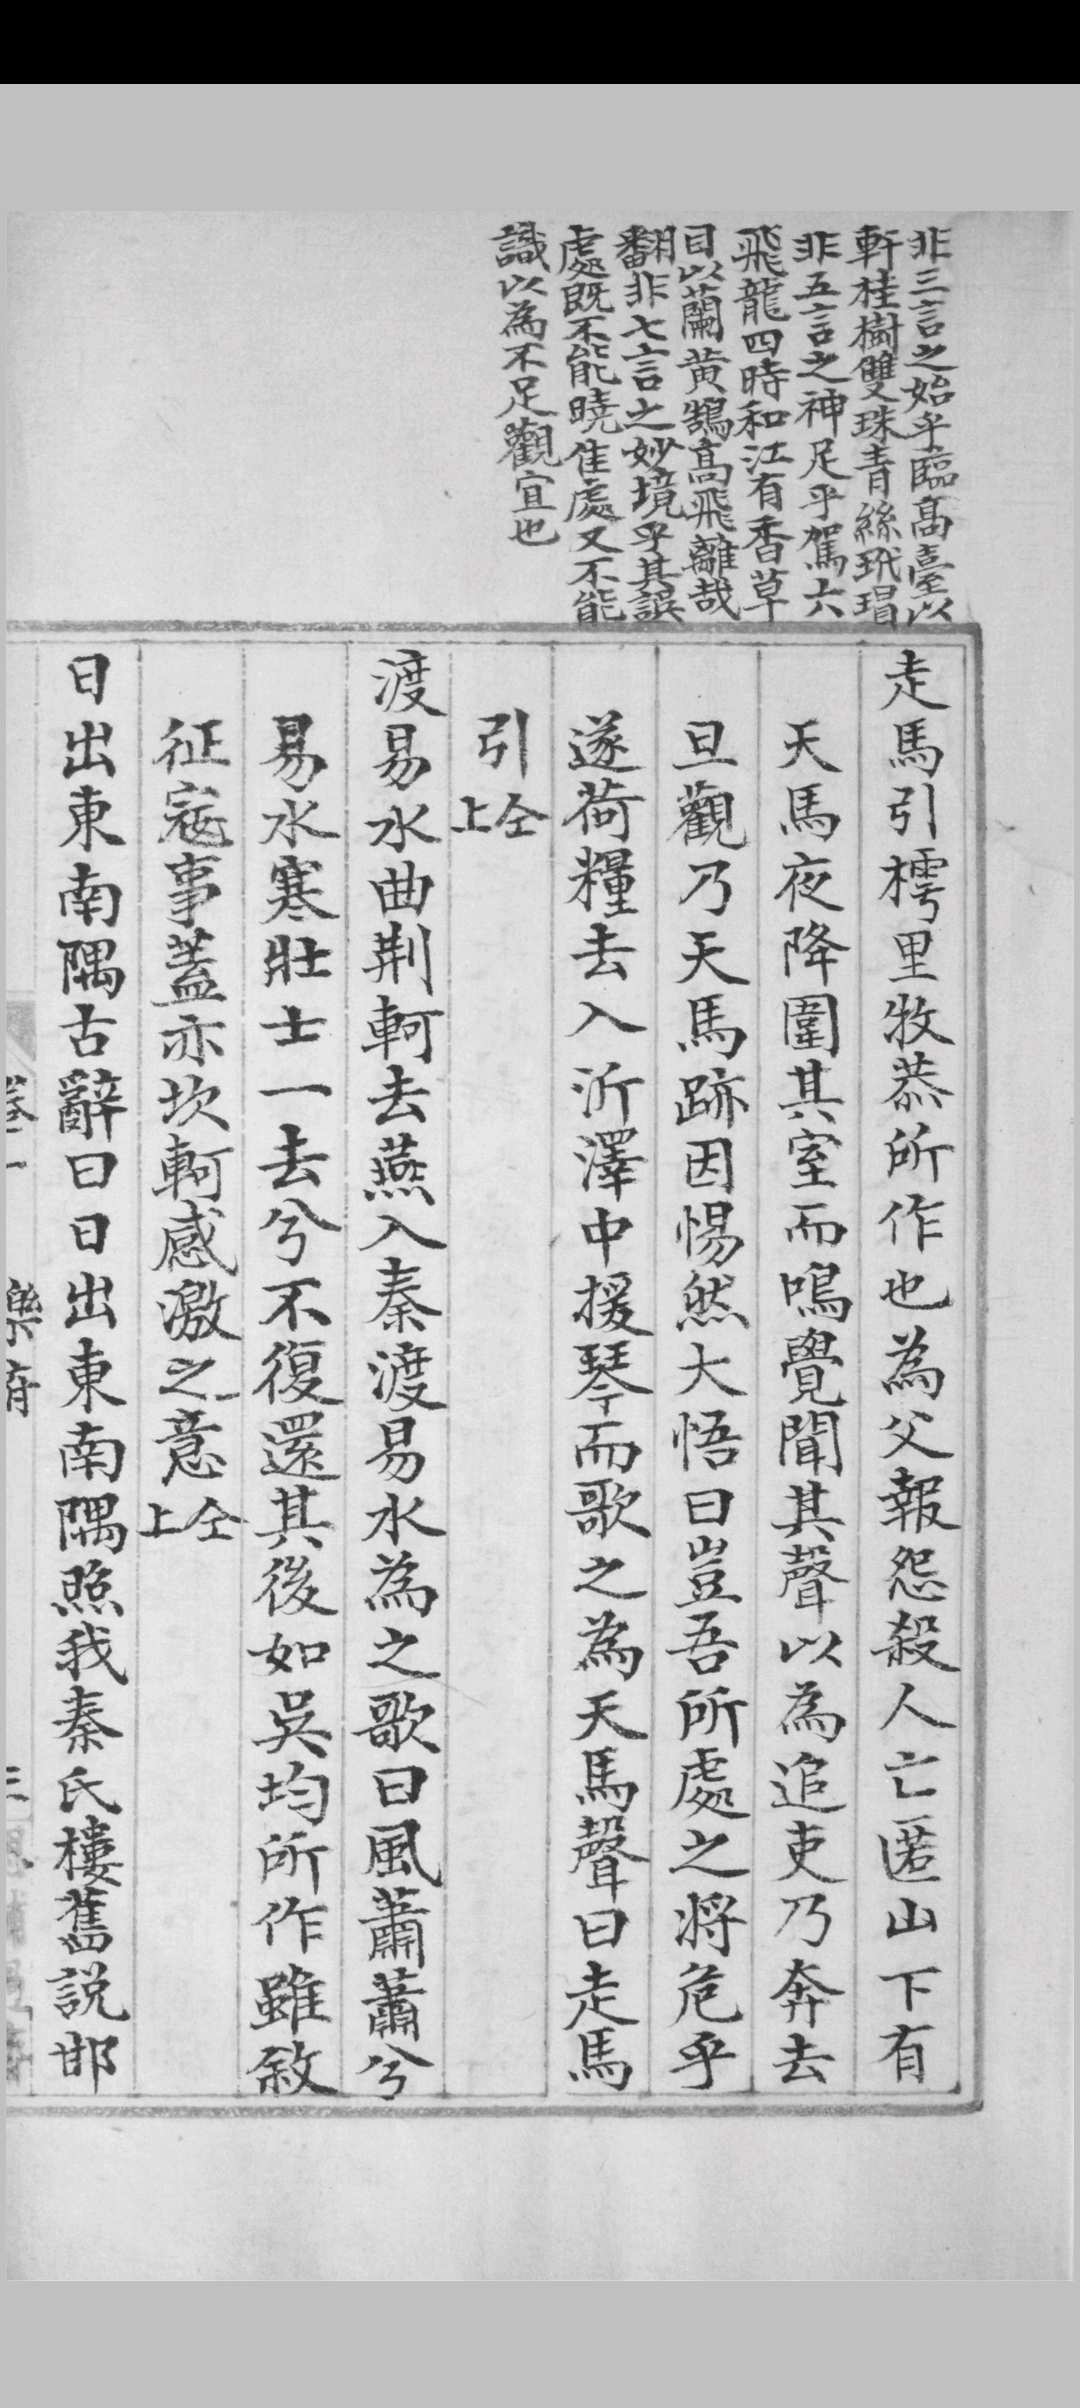 非三言之始乎臨高臺以
軒桂樹雙珠青絲玳瑁
非五言之神足乎駕六
飛龍四時和江有香草
目以蘭黄鵠高飛離哉
翻非七言之妙境乎其誤
處既不能曉佳處又不能
識以為不足觀宜也
走馬引樗里牧恭所作也為父報怨殺人亡匿山下有
天馬夜降圍其室而鳴覺聞其聲以為追吏乃奔去
旦觀乃天馬跡因惕然大悟曰豈吾所處之將危乎
遂荷糧去入沂澤中援琴而歌之為天馬聲曰走馬
引仝上
渡易水曲荆軻去燕入秦渡易水為之歌曰風蕭蕭兮
易水寒壯士一去兮不復還其後如吳均所作雖敘
征寇事蓋亦坎軻感激之意仝上
日出東南隅古辭曰日出東南隅照我秦氏樓舊説邯
卷一 樂府 三